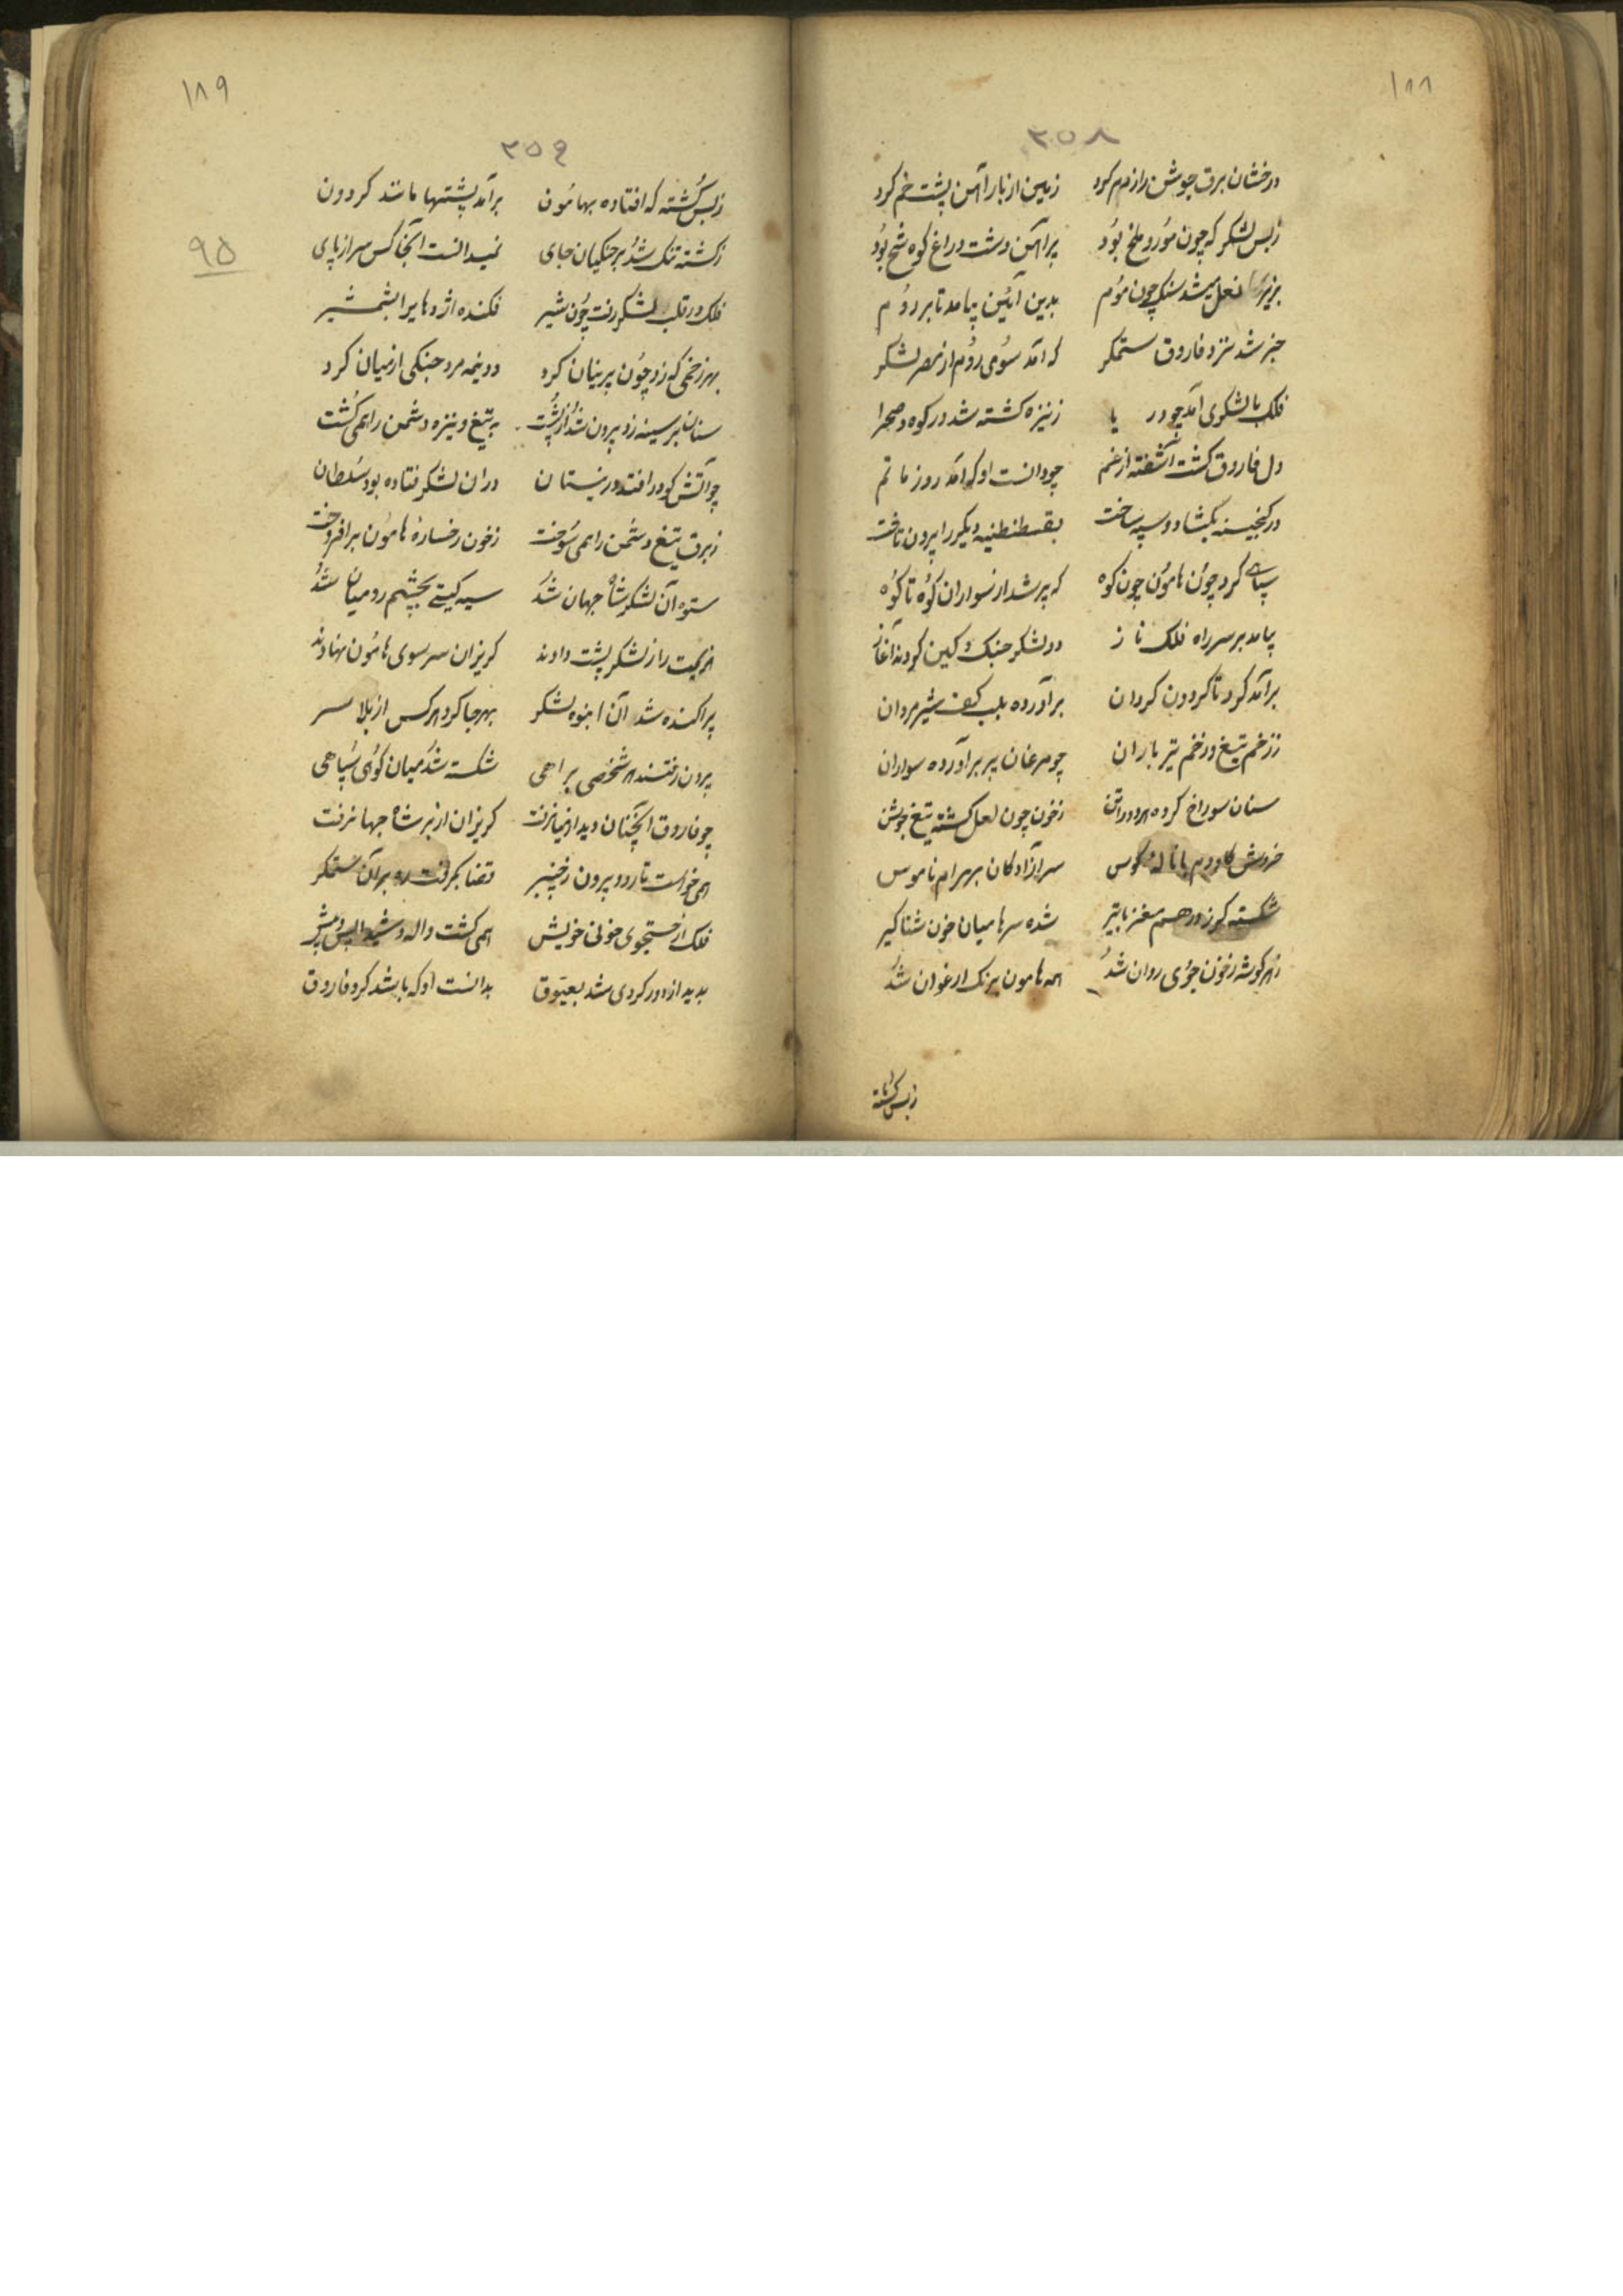 ۱۸۸
۳۵۸
درخشان برق جوشن رازدم کرد زمین از بار آهن پشت خم کرد
زبس لشکر که چون مور و ملخ بود پر آهن دشت و راغ کوه شخ بود
بزیر نعل میشد سنک چون موم بدین آئین بیامد تا بر روم
خبر شد نزد فاروق ستمکر که آمد سوی روم از مصر لشکر
فلک با لشکری آمد چو دریا ز نیزه کشته شد در کوه و صحرا
دل فاروق کشت آشفته از غم چو دانست او که آمد روز ماتم
در کنجینه بکشاد و سپه ساخت بقسطنطنیه دیکر را برون تاخت
سپاهی کرد چون هامون چون کوه که پر شد از سواران کوه تا کوه
بیامد بر سر راه فلک ناز دو لشکر جنک و کین کردند آغاز
برآمد کرد تا کردون کردان برآورده بلب کف شیرمردان
ززخم تیغ و زخم تیر باران چو مرغان پر برآورده سواران
سنان سوراخ کرده هر دوران زخون چون لعل کشته تیغ جوشن
خروش کاو دم با ناله کوس سر آزادکان بهر نام ناموس
شکسته کرز درهم مغز با تیر شده سرها میان خون شناکیر
زهر کوشه زخون جوی روان شد همه هامون برنک ارغوان شد
زبس کشته
۱۸۹
۳۵۹
زبس کشته که افتاده بهامون برآمد پشتها مانند کردون
زکشته تنک شد بر جنکیان جای نمیدانست آنجا کس سر از پای
فلک در قلب لشکر رفت چون شیر فکنده اژدها یرا بشمشیر
بهر زخمی که زد چون پرنیان کرد دو نیمه مرد جنکی از میان کرد
سنان بر سینه زد بیرون شد از پشت به تیغ و نیزه دشمن را همی کشت
چو آتش کو درافتد در نیستان دران لشکر فتاده بود سلطان
زبرق تیغ دشمن را همی سوخت زخون رخساره هامون برافروخت
ستوه آن لشکر شاه جهان شد سیه کیتی بچشم رومیان شد
هزیمت را ز لشکر پشت دادند کریزان سر سوی هامون نهادند
پراکنده شد آن انبوه لشکر بهرجا کرد هرکس از بلا سر
برون رفتند هر شخصی براهی شکسته شد میان کوی سپاهی
چو فاروق آنچنان دید از میان رفت کریزان از بر شاه جهان رفت
همی خواست تا رود بیرون زخیبر قضا بکرفت ره بر آن ستمکر
فلک از جستجوی خونی خویش همی کشت واله و شیدا پس و پیش
بدید از دور کردی شد بعیوق بدانست او که باشد کرد فاروق
۹۵